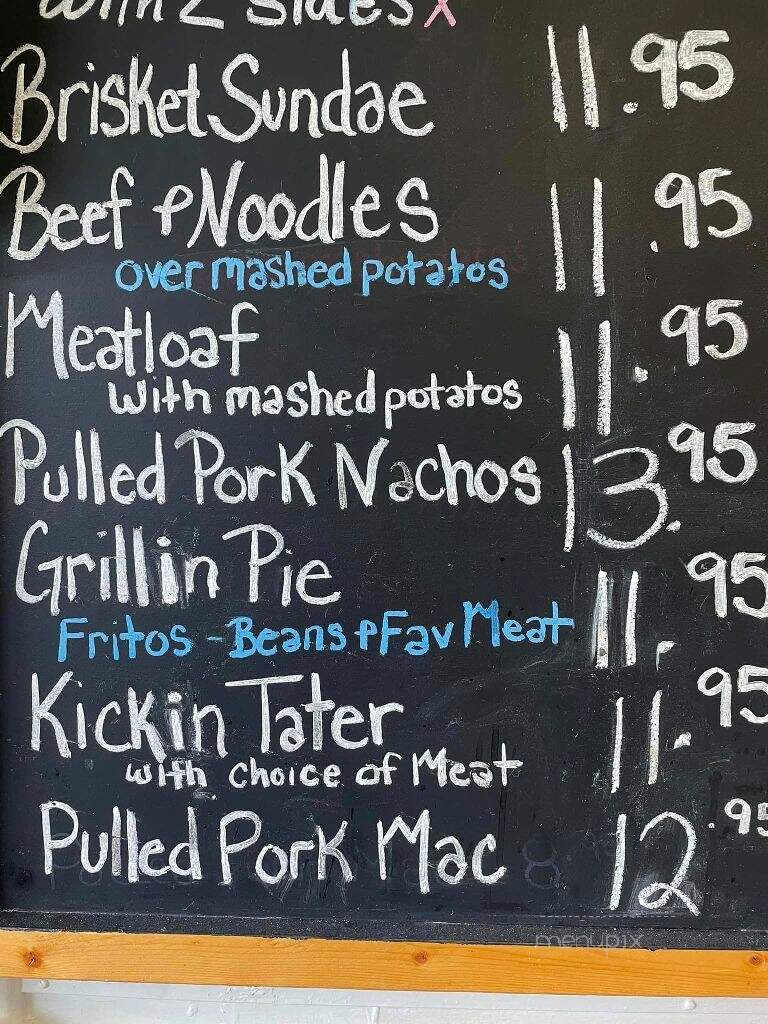 with 2 sides x
Brisket Sundae 11.95
Beef & Noodles 11.95
over mashed potatos
Meatloaf 11.95
with mashed potatos
Pulled Pork Nachos 13.95
Grillin Pie 11.95
Fritos - Beans & Fav Meat
Kickin Tater 11.95
with choice of Meat
Pulled Pork Mac 12.95
menupix